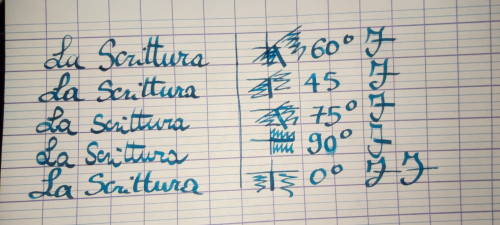 La Scrittura 60° F
La Scrittura 45 F
La Scrittura 75° F
La Scrittura 90° F
La Scrittura 0° F F